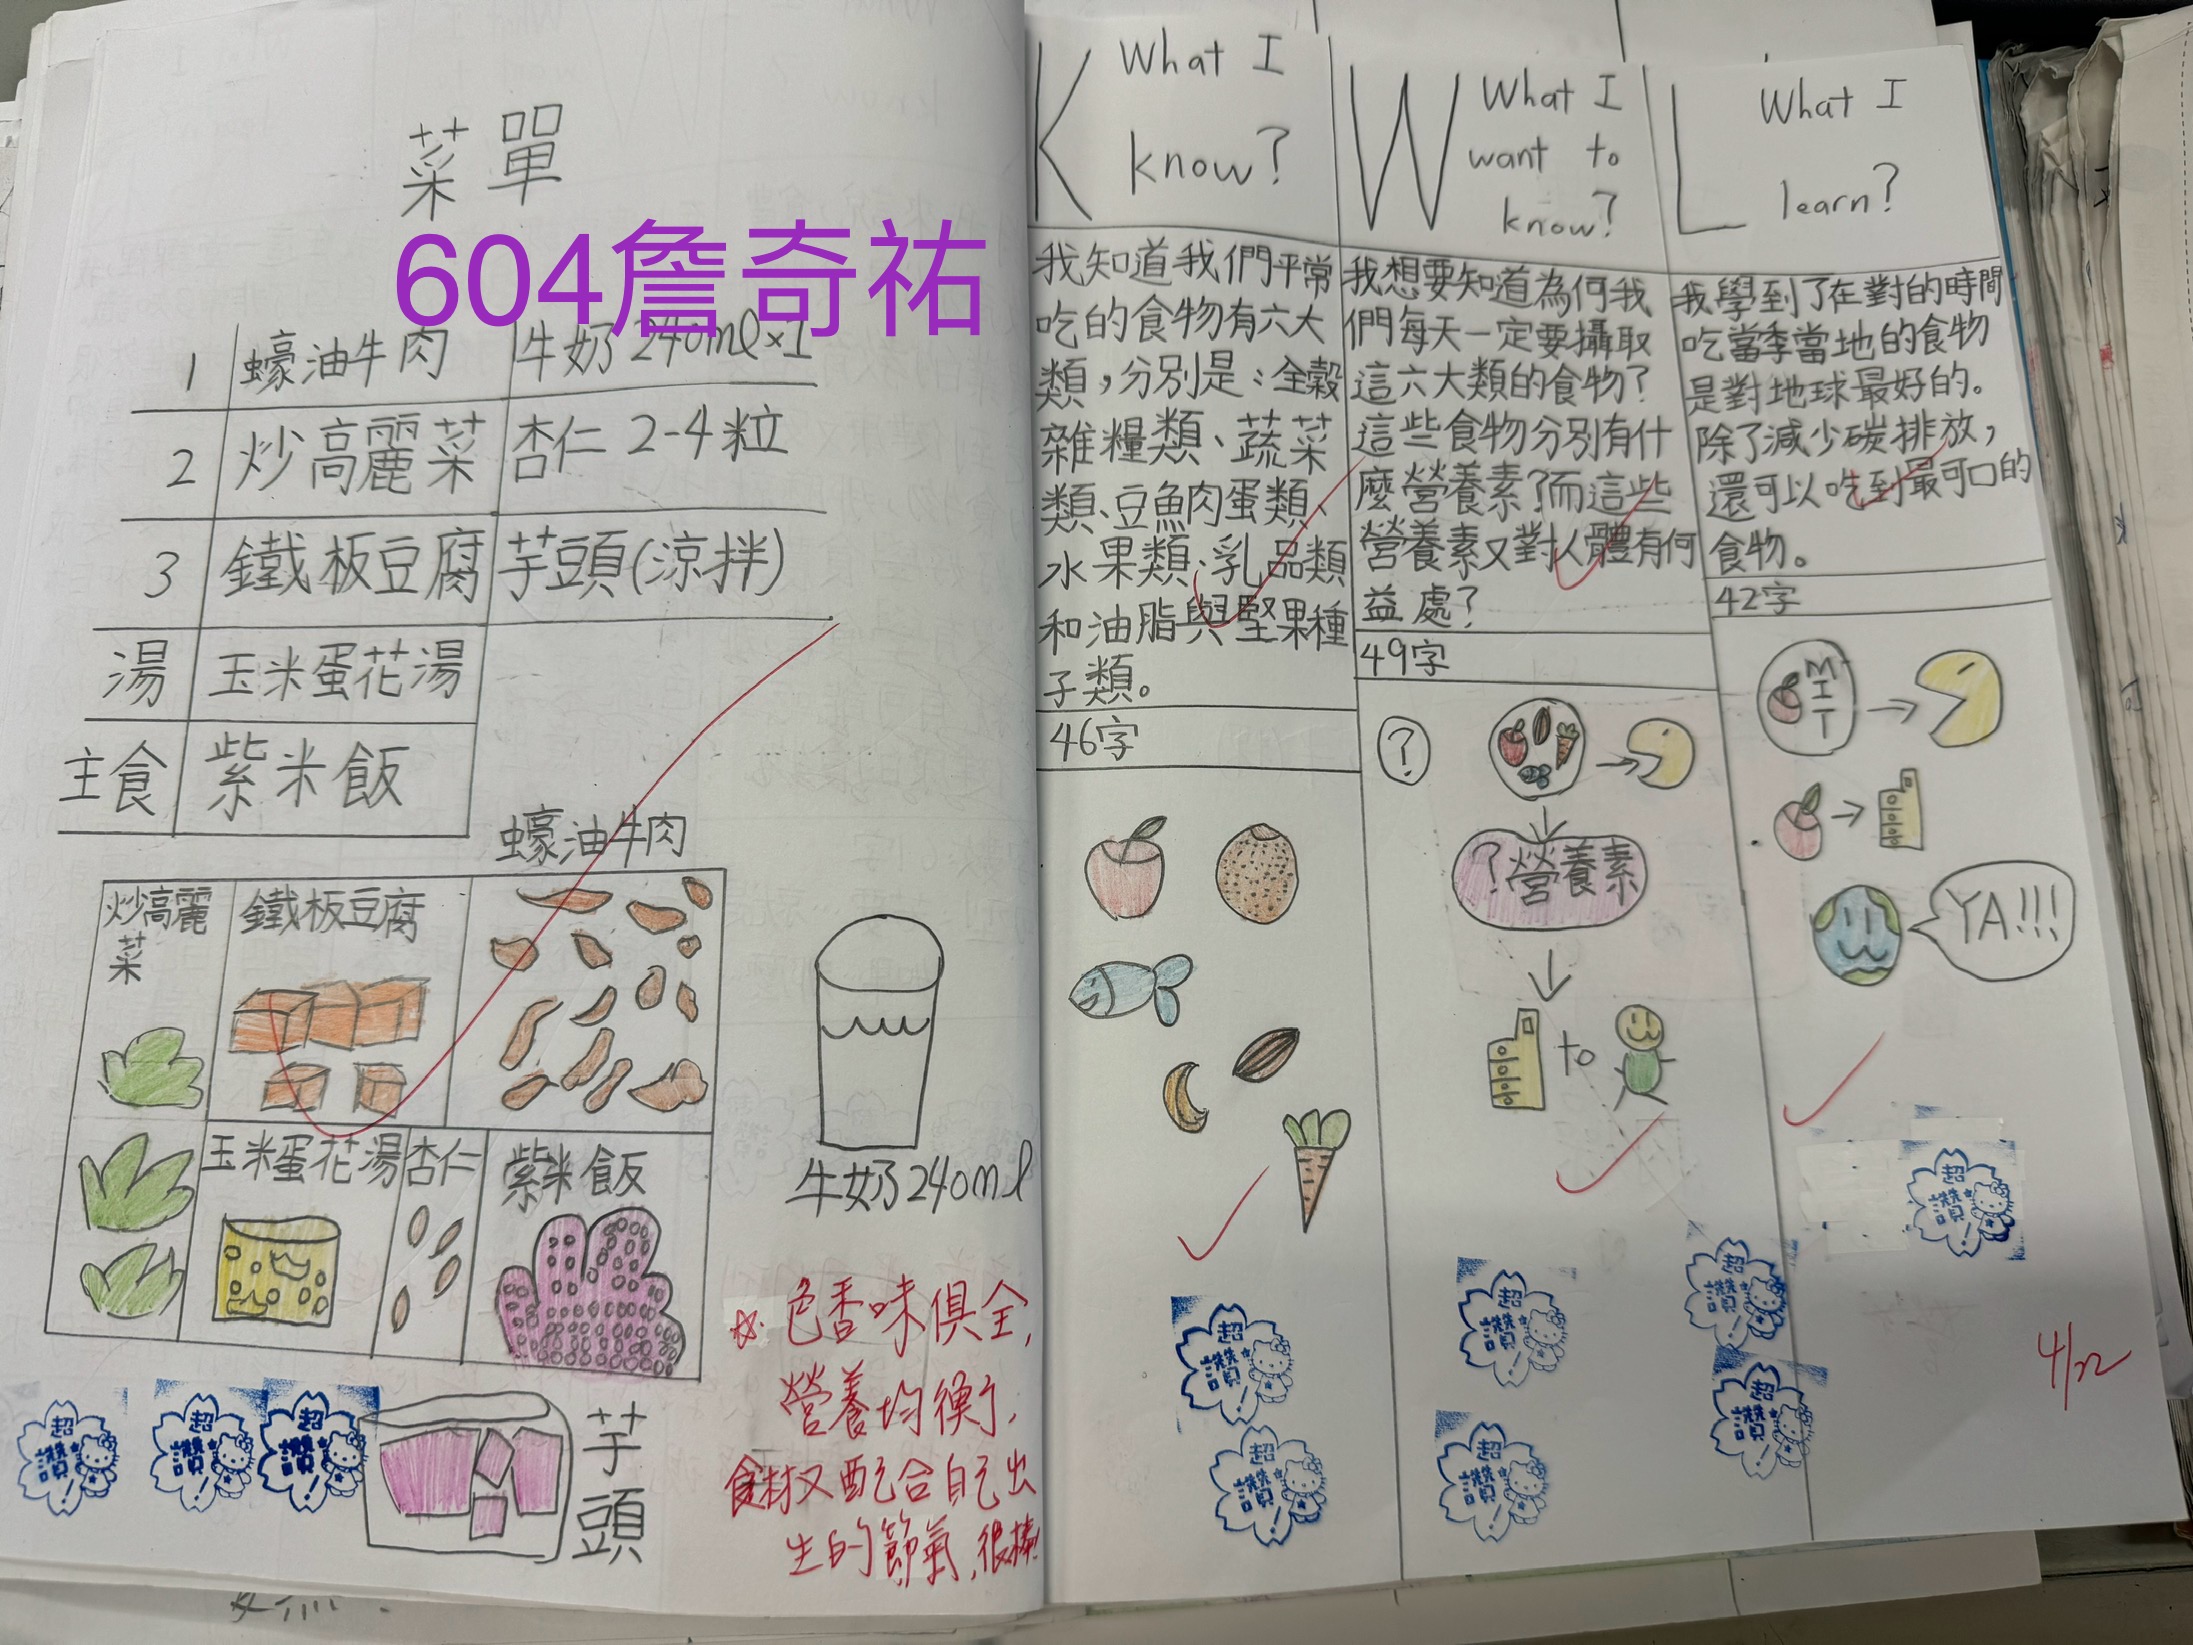 菜單
604詹奇祐
1 蠔油牛肉 牛奶240ml×1
2 炒高麗菜 杏仁2-4粒
3 鐵板豆腐 芋頭(涼拌)
湯 玉米蛋花湯
主食 紫米飯
蠔油牛肉
炒高麗
菜
鐵板豆腐
玉米蛋花湯
杏仁
紫米飯
牛奶240ml
芋頭
☆色香味俱全,
營養均衡,
食材又配合自己出
生的節氣,很棒!
超讚!
超讚!
超讚!
K What I
know?
我知道我們平常
吃的食物有六大
類,分別是:全穀
雜糧類、蔬菜
類、豆魚肉蛋類、
水果類、乳品類
和油脂與堅果種
子類。
46字
超讚!
超讚!
W What I
want to
know?
我想要知道為何我
們每天一定要攝取
這六大類的食物?
這些食物分別有什
麼營養素?而這些
營養素又對人體有何
益處?
49字
?
?營養素
to
超讚!
超讚!
L What I
learn?
我學到了在對的時間
吃當季當地的食物
是對地球最好的。
除了減少碳排放,
還可以吃到最可口的
食物。
42字
MIT
YA!!!
超讚!
超讚!
超讚!
4/22